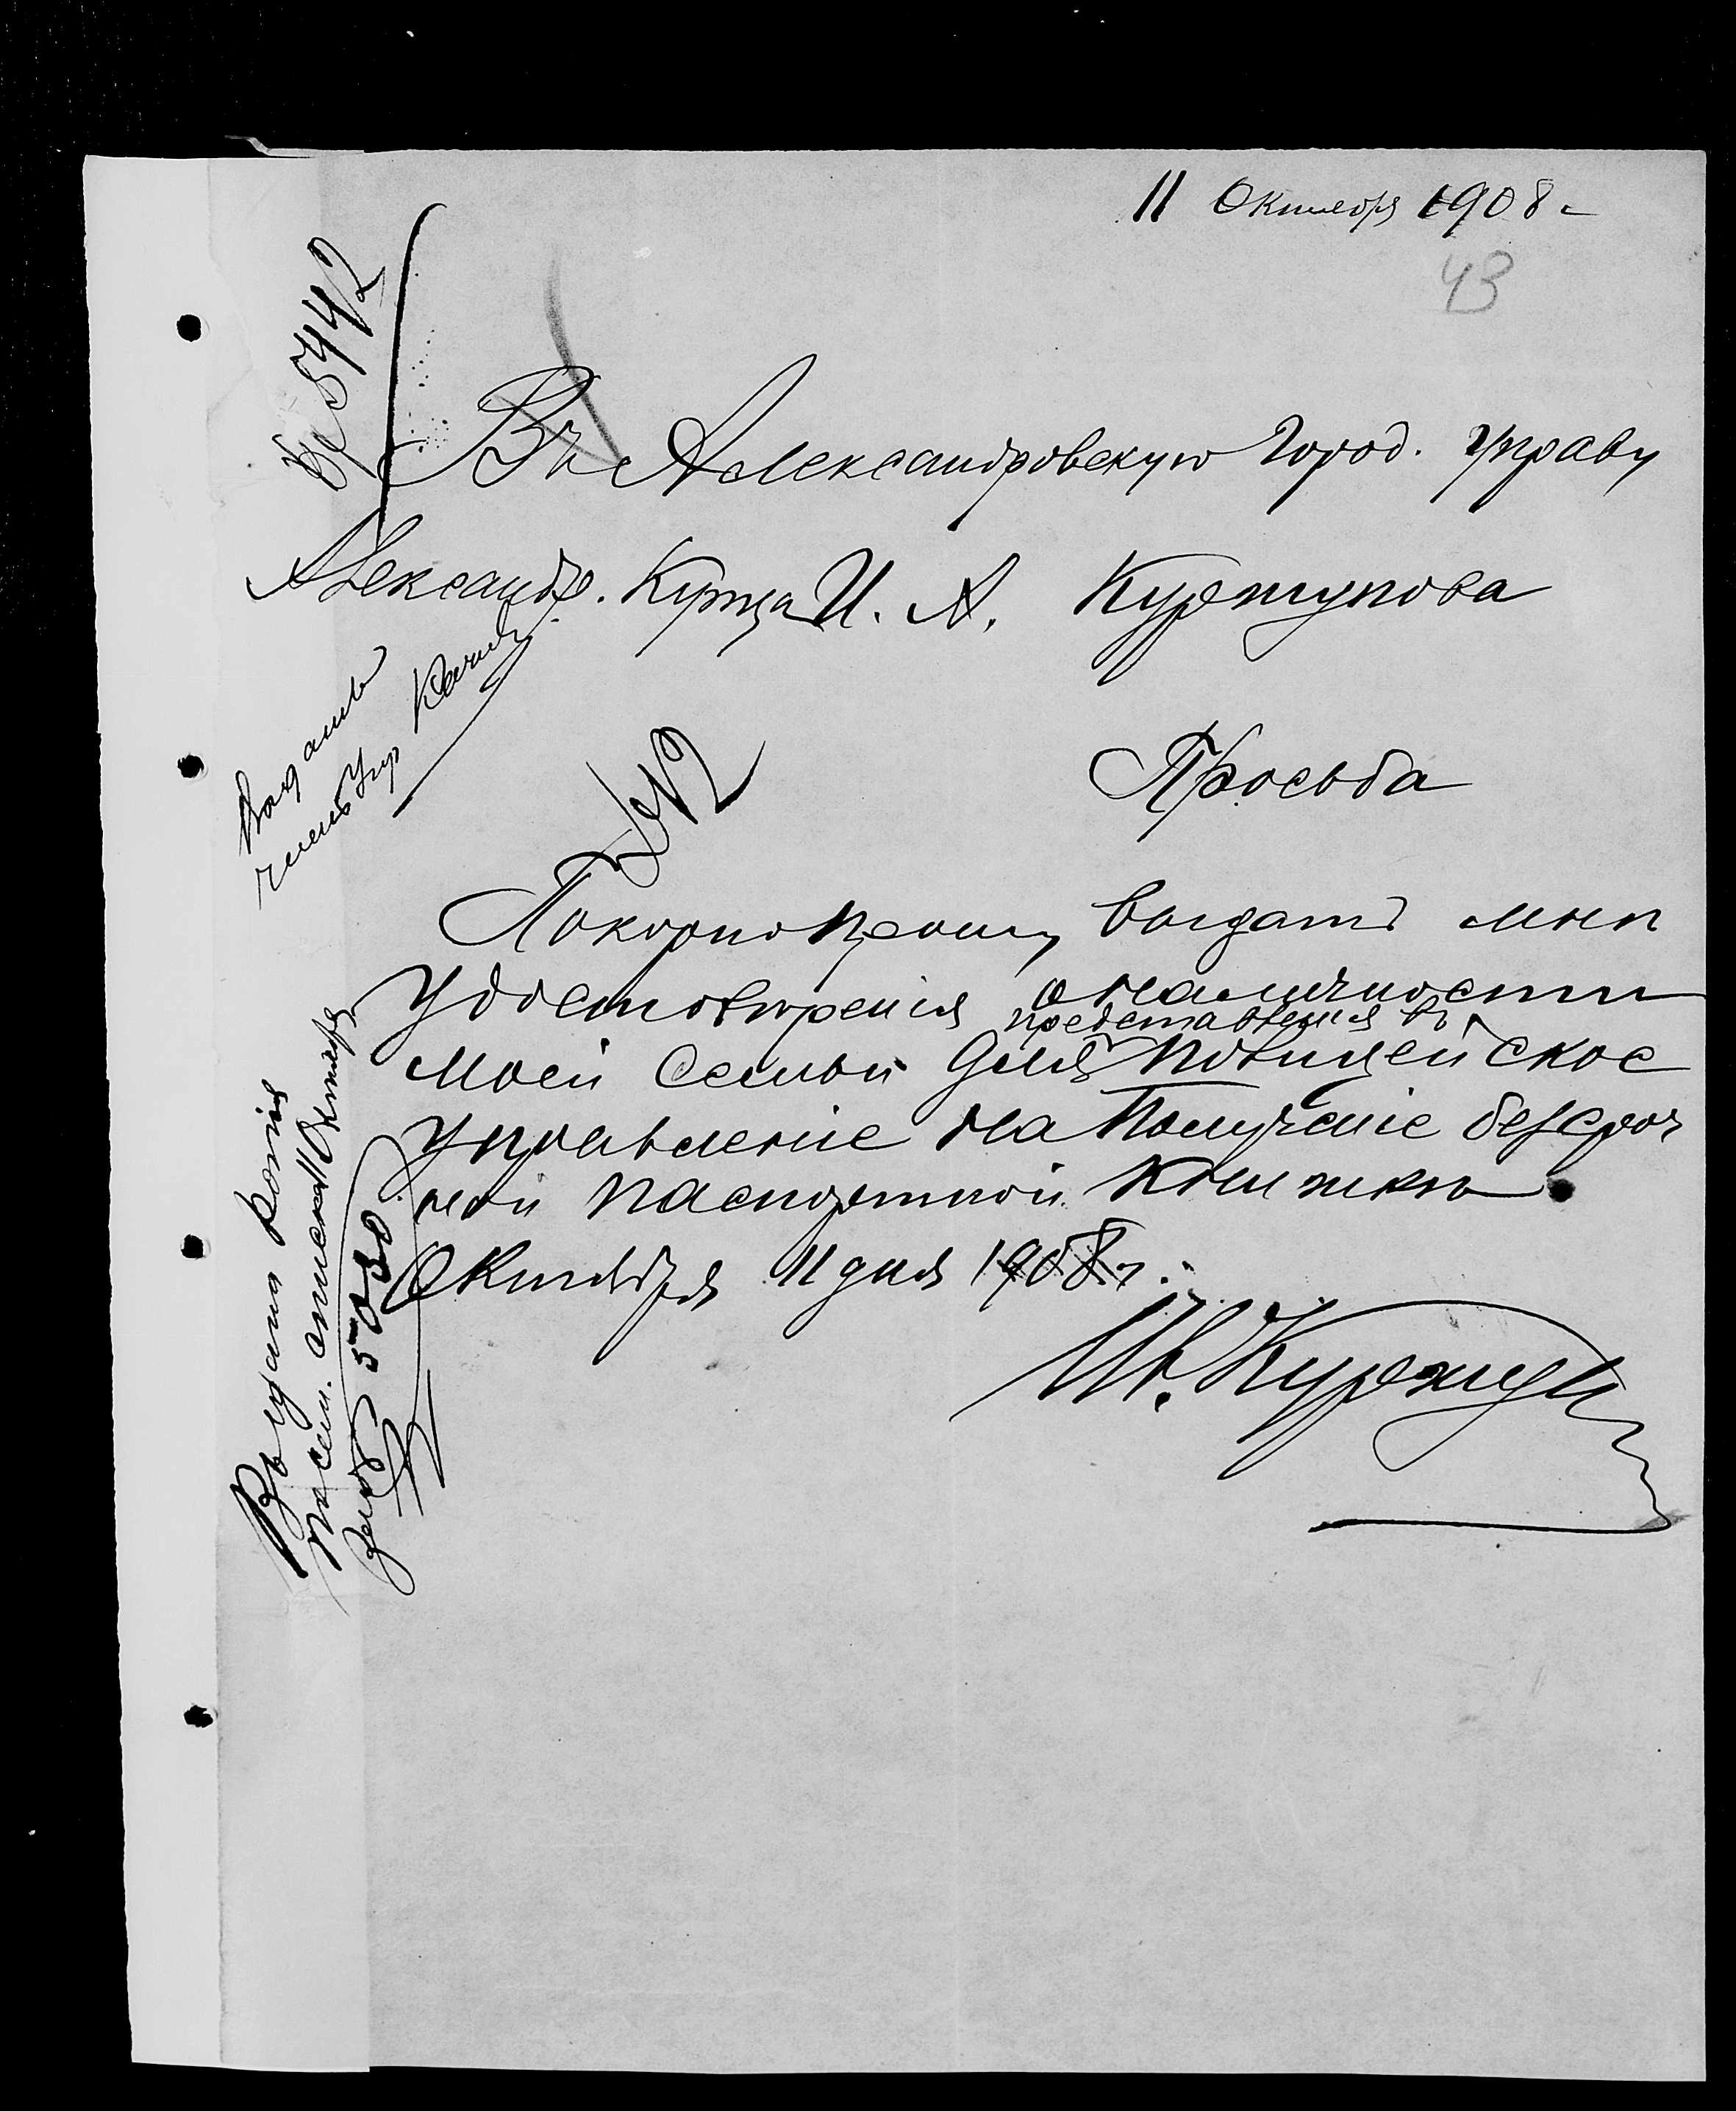 11 Октября 1908 г
43
Вх 5442
Въ Александровскую Город. Управу
Александр. Купца И. А. Куржупова
Выдать
членъ Упр
Просьба
№2
Покорно прошу выдать мнѣ
Удостоверенія о наличности
моей Семьи для представленія въ полицейское
управленіе на Получение безсроч
ной паспортной книжки
Октября 11 дня 1908 г.
Ив. Куржуп
Выдана копія
посем. списка 11 Октября
за № 5030